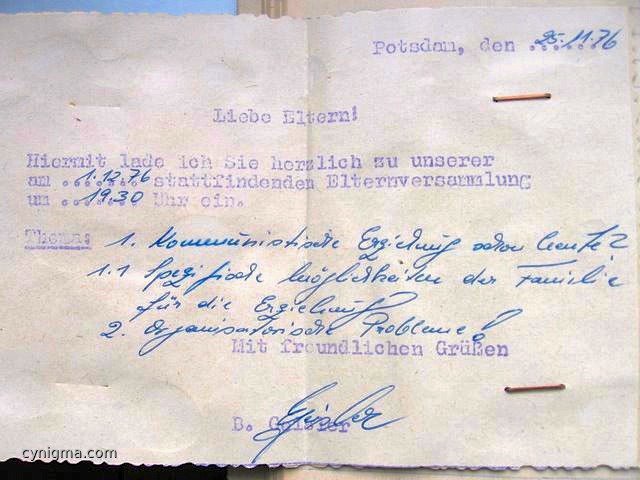 Potsdam, den 25.11.76
Liebe Eltern!
Hiermit lade ich Sie herzlich zu unserer
am 1.12.76 stattfindenden Elternversammlung
um 19.30 Uhr ein.
Thema: 1. Kommunistische Erziehung schon heute?
1.1 Spezifische Möglichkeiten der Familie
für die Erziehung
2. Organisatorische Probleme!
Mit freundlichen Grüßen
B.
cynigma.com